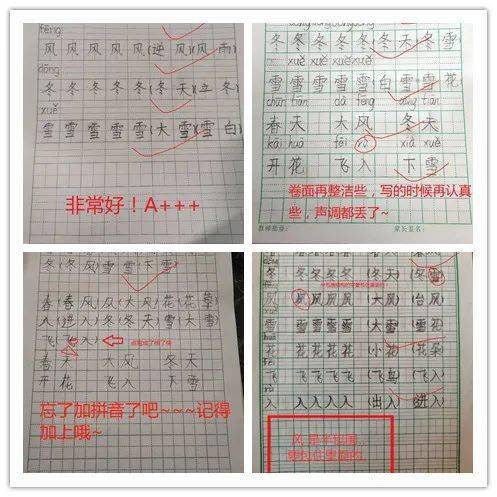 fēng
风 风 风 风 风 (逆 风)(风 雨)
dōng
冬 冬 冬 冬 冬 (冬 天)(立 冬)
xuě
雪 雪 雪 雪 雪 (大 雪)(雪 白)
非常好！A+++
冬 冬 冬 冬 冬 冬 天 冬 雪
xuě xuě xuě xuě
雪 雪 雪 雪 雪 白 雪 雪 花
chūn tiān dà fēng dōng tiān
春 天 大 风 冬 天
kāi huā fēi rù xià xuě
开 花 飞 入 下 雪
卷面再整洁些，写的时候再认真
些，声调都丢了~
家长签名：
冬(冬 风)雪 雪(下 雪)
春(春 风)风(大 风)花(花 草)
入(进 入)冬(冬 天)雪(大 雪)
飞(飞 入)
春 天 大 风 冬 天
开 花 飞 入 下 雪
忘了加拼音了吧~~~记得
加上哦~
冬 冬 冬 冬 冬 (冬天) (冬雪)
风 风 风 风 风 (大风) (台风)
雪 雪 雪 雪 雪 (大雪) (雪花)
花 花 花 花 花 (小花) (花朵)
飞 飞 飞 飞 飞 (飞鸟) (飞入)
入 入 入 入 入 (出入) (进入)